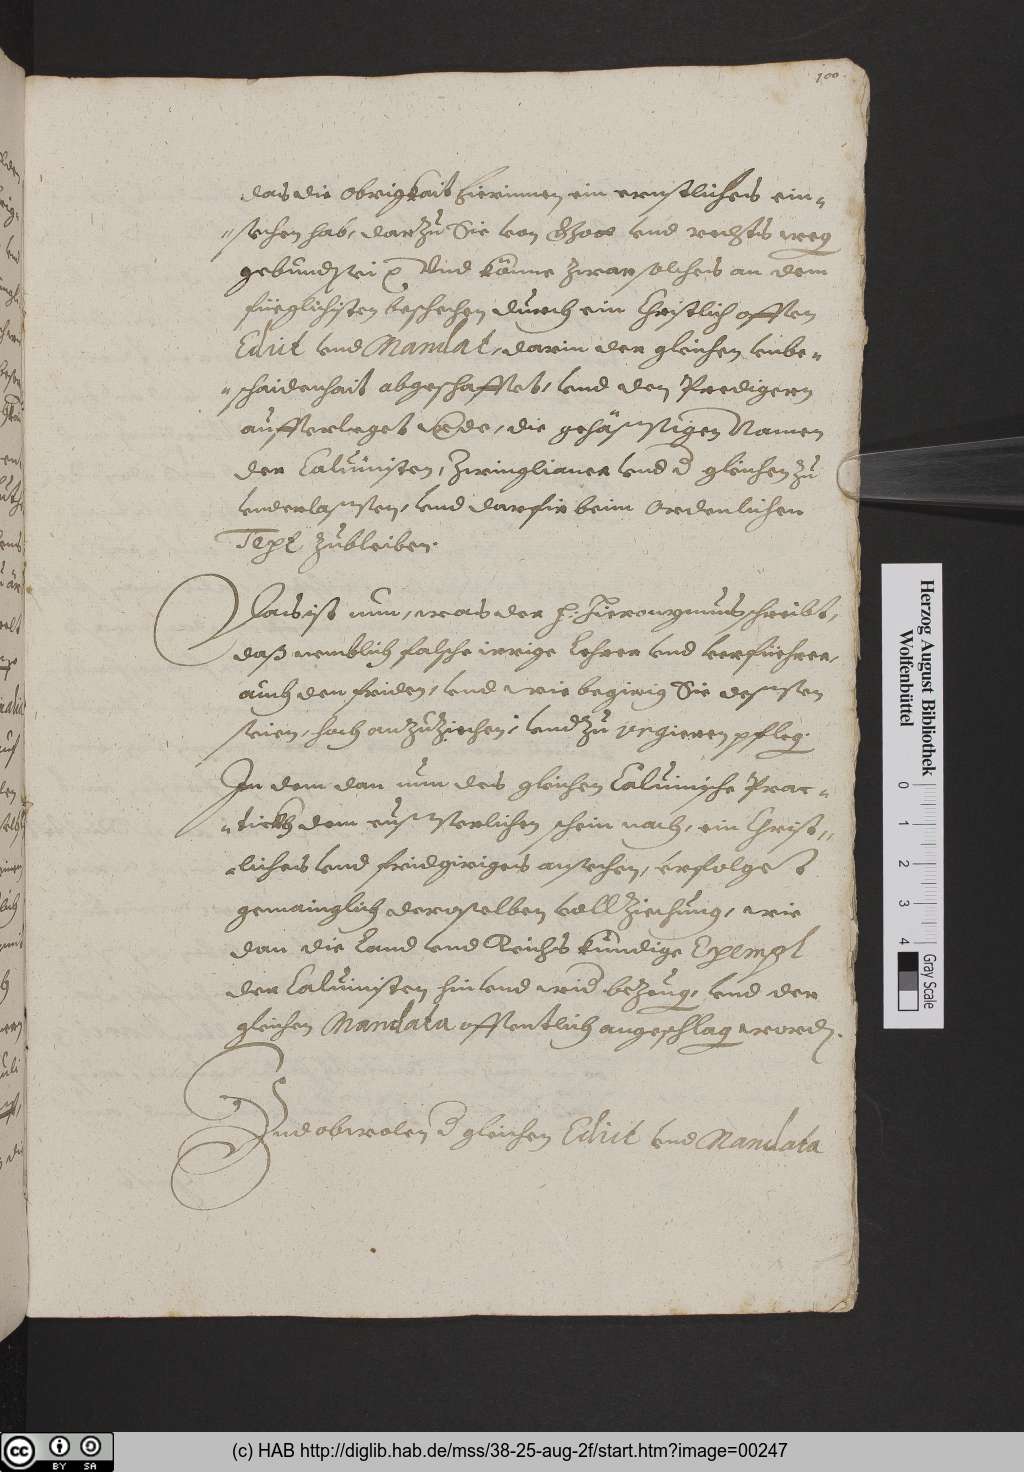 100
das die Obrigkait hierinnen ein ernstliches ein-
sehen hab, darzu Sie von Gott vnd rechts weg
gebund sei vnd könne zwar solches an dem
füeglichsten beschehen durch ein Christlich offen
Edict vnd Mandat, darin der gleichen vnbe-
schaidenhait abgeschafft, vnd den Predigern
aufferleget werde, die gehässigen Namen
der Caluinisten, Zwinglianer vnd d gleichen zu
vnderlassen, vnd darfir beim Ordenlichen
Text zubleiben.
Das ist nun, was der H. Hieronymus schreibt,
daß nemblich falsche irrige Lehrer vnd verfüehrer,
auch den friden, vnd wie begirig Sie dessen
seien, hoch anzuziehen, vnd zu regieren pfleg.
In dem dan nun des gleichen Caluinische Prac-
tickh dem eusserlichen schein nach, ein Christ-
liches vnd fridgiriges ansehen, erfolget
gemainglich deroselben vollziehung, wie
dan die Land vnd Reichs kündige Exempl
der Caluinisten hin vnd wid bezeug, vnd der
gleichen Mandata offentlich angeschlag word.
Vnd obwolen d gleichen Edict vnd Mandata
Herzog August Bibliothek
Wolfenbüttel
0 1 2 3 4
Gray Scale
CC BY SA
(c) HAB http://diglib.hab.de/mss/38-25-aug-2f/start.htm?image=00247